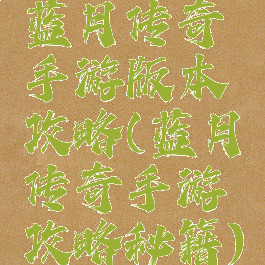 蓝月传奇
手游版本
攻略(蓝月
传奇手游
攻略秘籍)